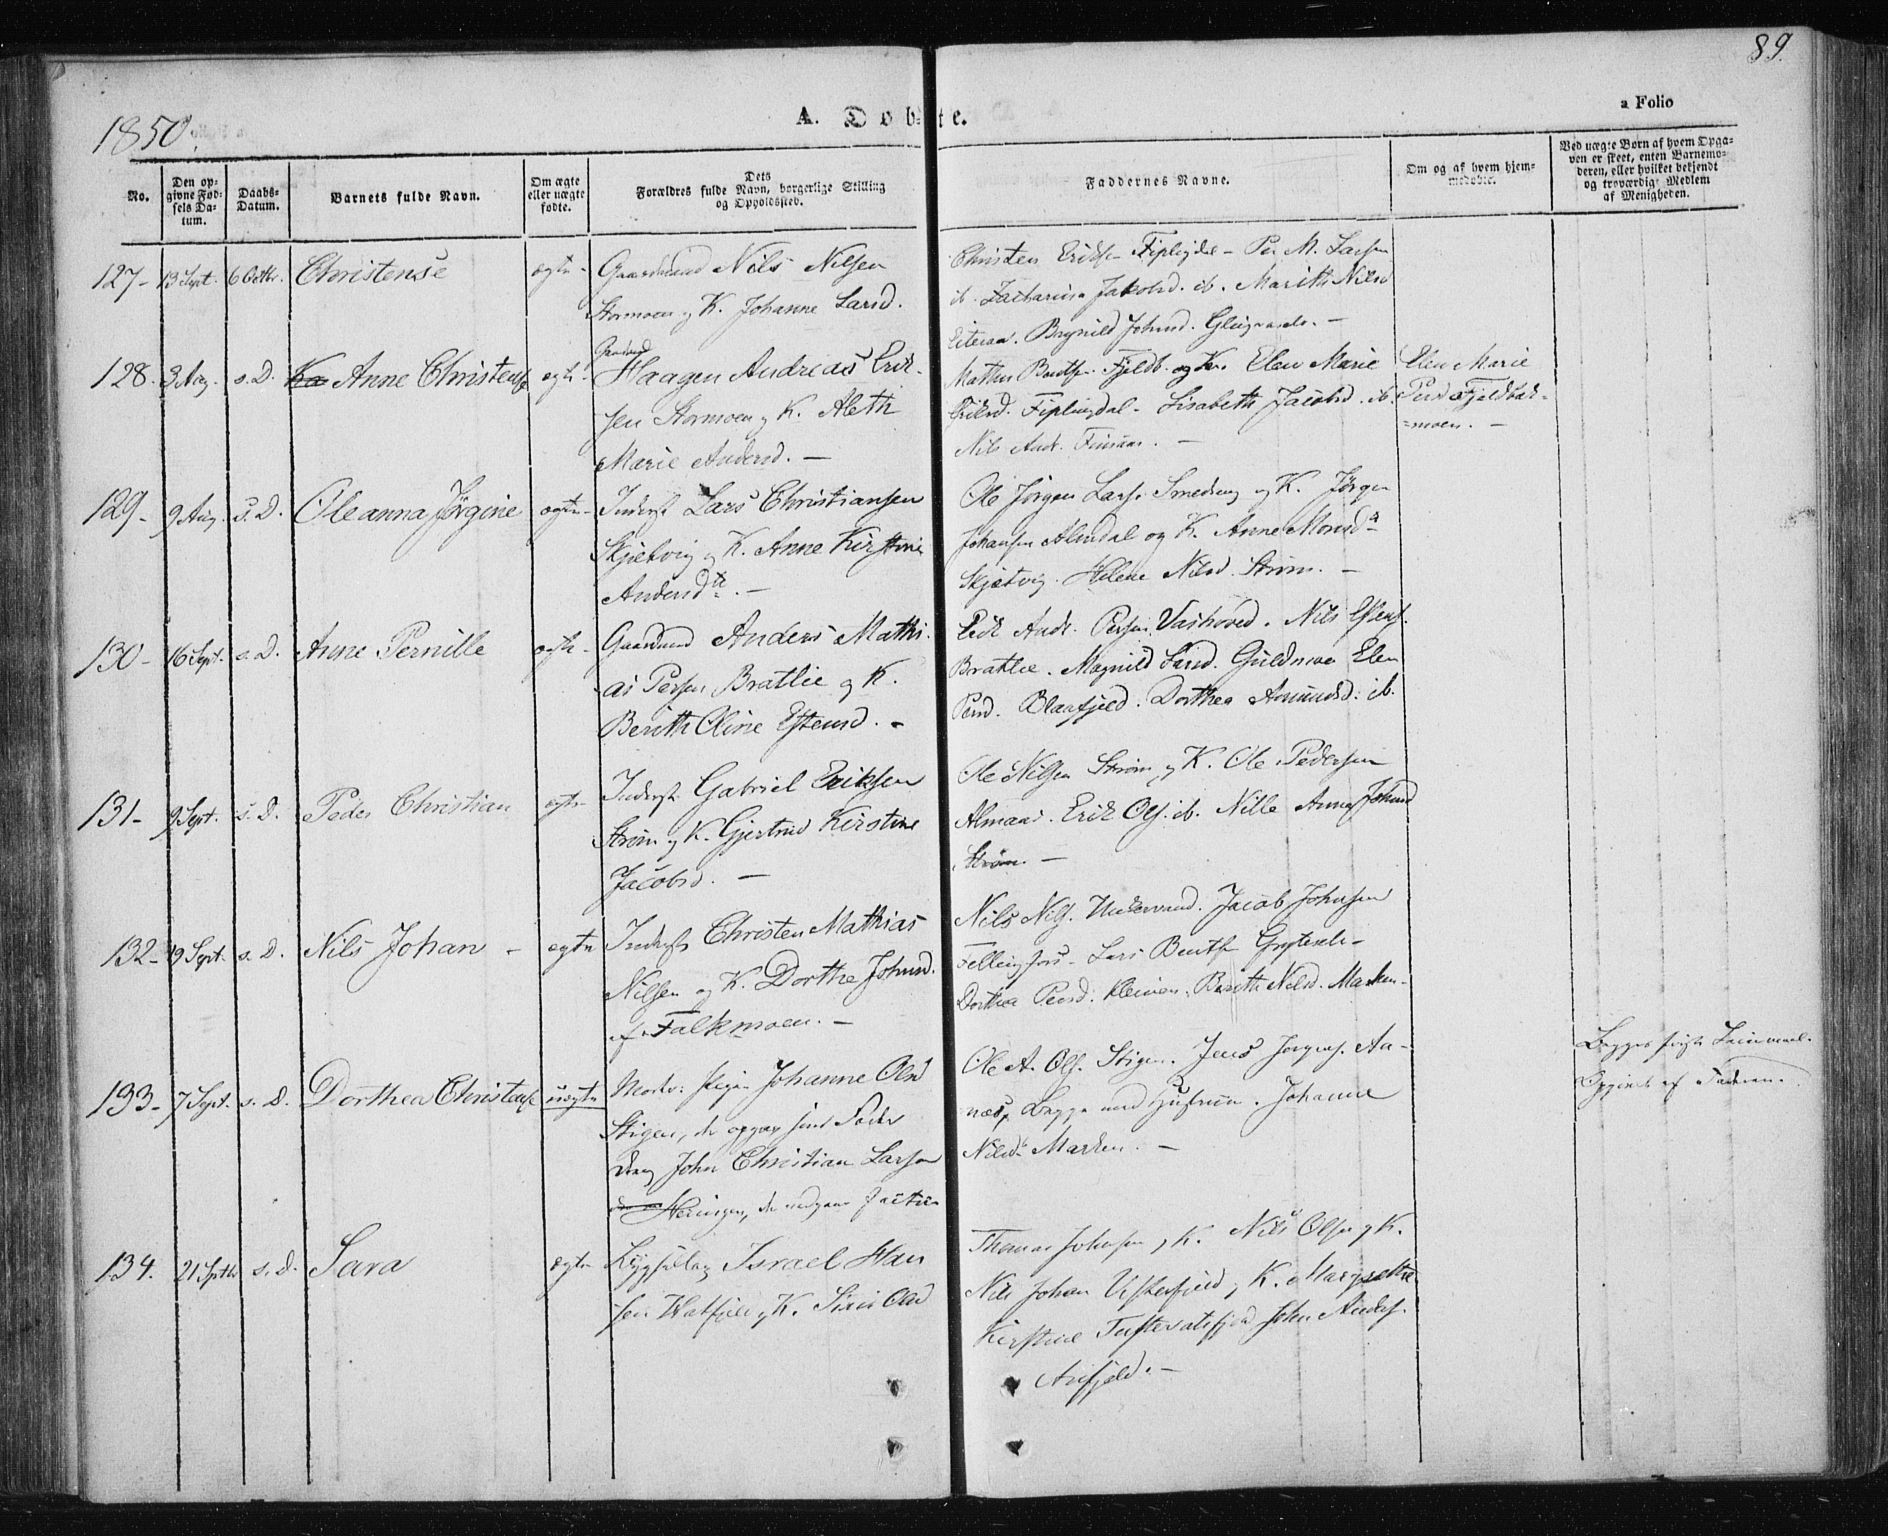 89.
a Folio
1850.
A. Døbte.
No.
Den op-
givne Fød-
sels Da-
tum.
Daabs-
Datum.
Barnets fulde Navn.
Om ægte
eller uægte
fødte.
Dets
Forældres fulde Navn, borgerlige Stilling
og Opholdssted.
Faddernes Navne.
Om og af hvem hjem-
medøbt.
Ved uægte Børn af hvem Opga-
ven er skeet, enten Barnemo-
deren, eller hvilket bekjendt
og troværdigt Medlem
af Menigheden.
127- 13 Sept. 6 Octbr. Christense ægte- Gaardmand Nils Nilsen
Stormoen og K. Johanne Larsd.
Christen Eriks- Fiplingdal - Per M. Larsen
ib. Zacharias Jakobsd. ib. Marith Nilsd
Eiteraa. Brynild Johnsd. -
128. 3 Aug. s. D. Anne Christense ægte Gaardmd
Haagen Andreas Erik-
sen Stormoen og K. Aleth
Marie Andersd. -
Mathis Bentsen Fjeldb. og K. Elen Marie
Eriksd. Fiplingdal - Lisabeth Jacobsd. ib.
Nils Andr. -
Elen Marie
Persd Fjeldbak-
=moen. -
129- 9 Aug. s. D. Oleanna Jørgine ægte- Inderst Lars Christiansen
Skjetvig og K. Anne Kirstine
Andersdtr. -
Ole Jørgen Lars. Smedseng og K. Jørgen
Johansen Almdal og K. Anne Monsd
Skjætvig. Helene Nilsd. Strøm. -
130- 16 Sept. s. D. Anne Pernille ægte- Gaardmand Anders Mathi-
as Persen Bratlie og K.
Berith Oline Estensd. -
Erik Andr. Persen Vashoved. Nils Estens.
Bratlie. Magnild Larsd. Guldmoe Elen
Persd. Blaafjeld. Dorthea Amundsd. ib.
131- 9 Sept. s. D. Peder Christian ægte Inderst Gabriel Eriksen
Strøm og K. Gjertrud Kirstine
Jacobsd. -
Ole Nilsen Strøm og K. Ole Pedersen
Almaas. Erik Ols. ib. Nille Anna Johnsd
Strøm. -
132- 19 Sept. s. D. Nils Johan - ægte Inderst Christen Mathias
Nilsen og K. Dorthe Johnsd.
af Falkmoen. -
Nils Nils. Undervand. Jacob Johnsen
Fellingfors - Lars Bents
Dorthea Persd. Kleiven. Berith Nilsd. Marken-
133- 7 Sept. s. D. Dorthea Christense uægte Moder: Pigen Johanne Olsd
Stigen, der opgav sin Fader
Dreng John Christian Larsen
Heringen, der
Ole A. Ols. Stigen. Jens Jørgens. Aa-
næs, Begge med Hustruer. Johanne
Nilsd. Marken. -
Begges første Leiermaal.
Opgivet af Faderen.
134. 21 Septbr s. d. Sara ægte Israel Han
sen Hatfjeld og K. Siris Olsd
Thomas Johnsen og K. Nils Olsen og K.
Nils Johan og K. Margrethe
Kirstine John Anders.
-